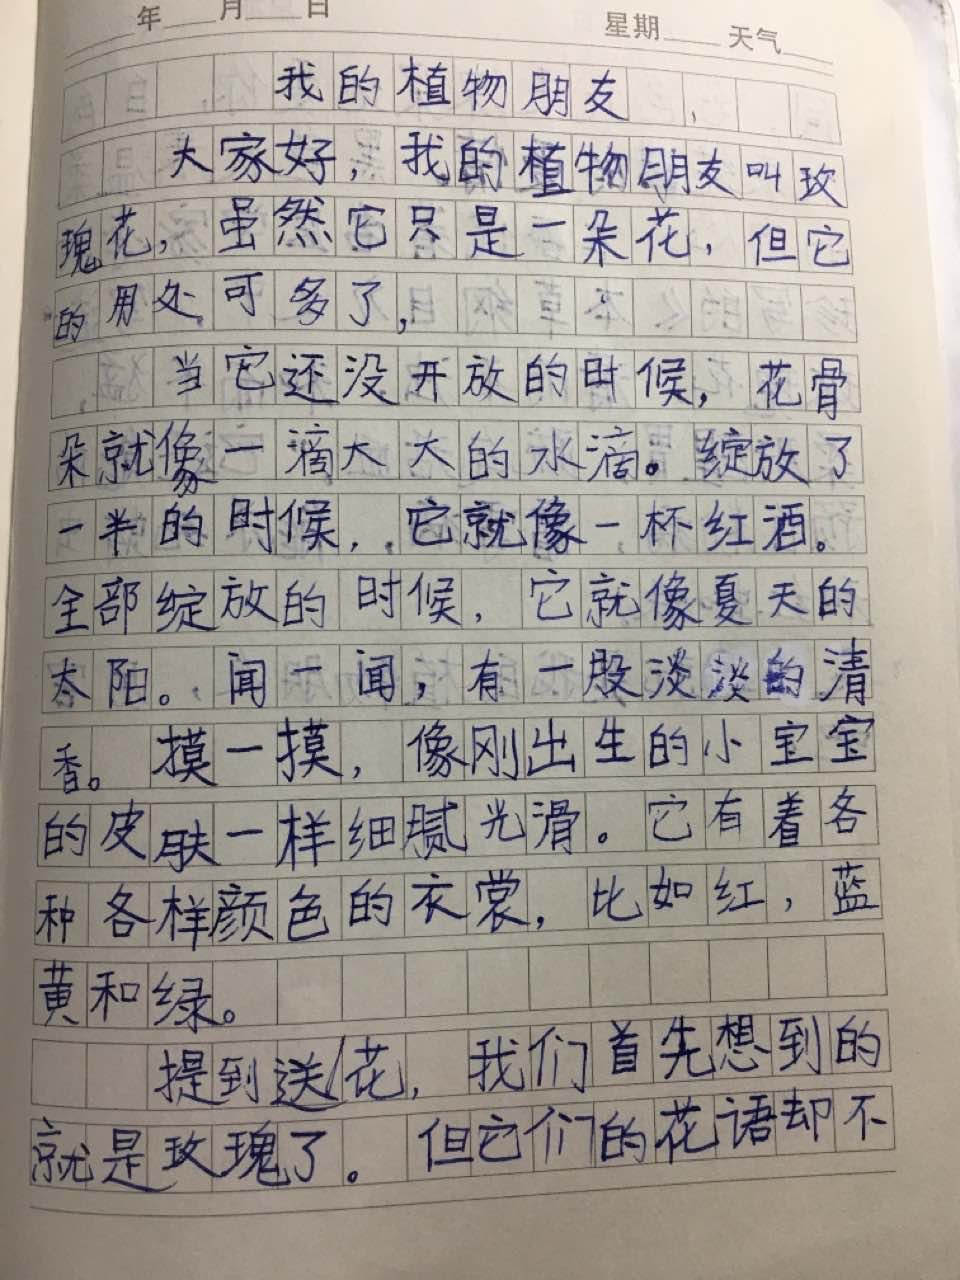 年 月 日 星期 天气
我的植物朋友
大家好，我的植物朋友叫玫
瑰花，虽然它只是一朵花，但它
的用处可多了，
当它还没开放的时候，花骨
朵就像一滴大大的水滴。绽放了
一半的时候，它就像一杯红酒。
全部绽放的时候，它就像夏天的
太阳。闻一闻，有一股淡淡的清
香。摸一摸，像刚出生的小宝宝
的皮肤一样细腻光滑。它有着各
种各样颜色的衣裳，比如红，蓝
黄和绿。
提到送花，我们首先想到的
就是玫瑰了。但它们的花语却不